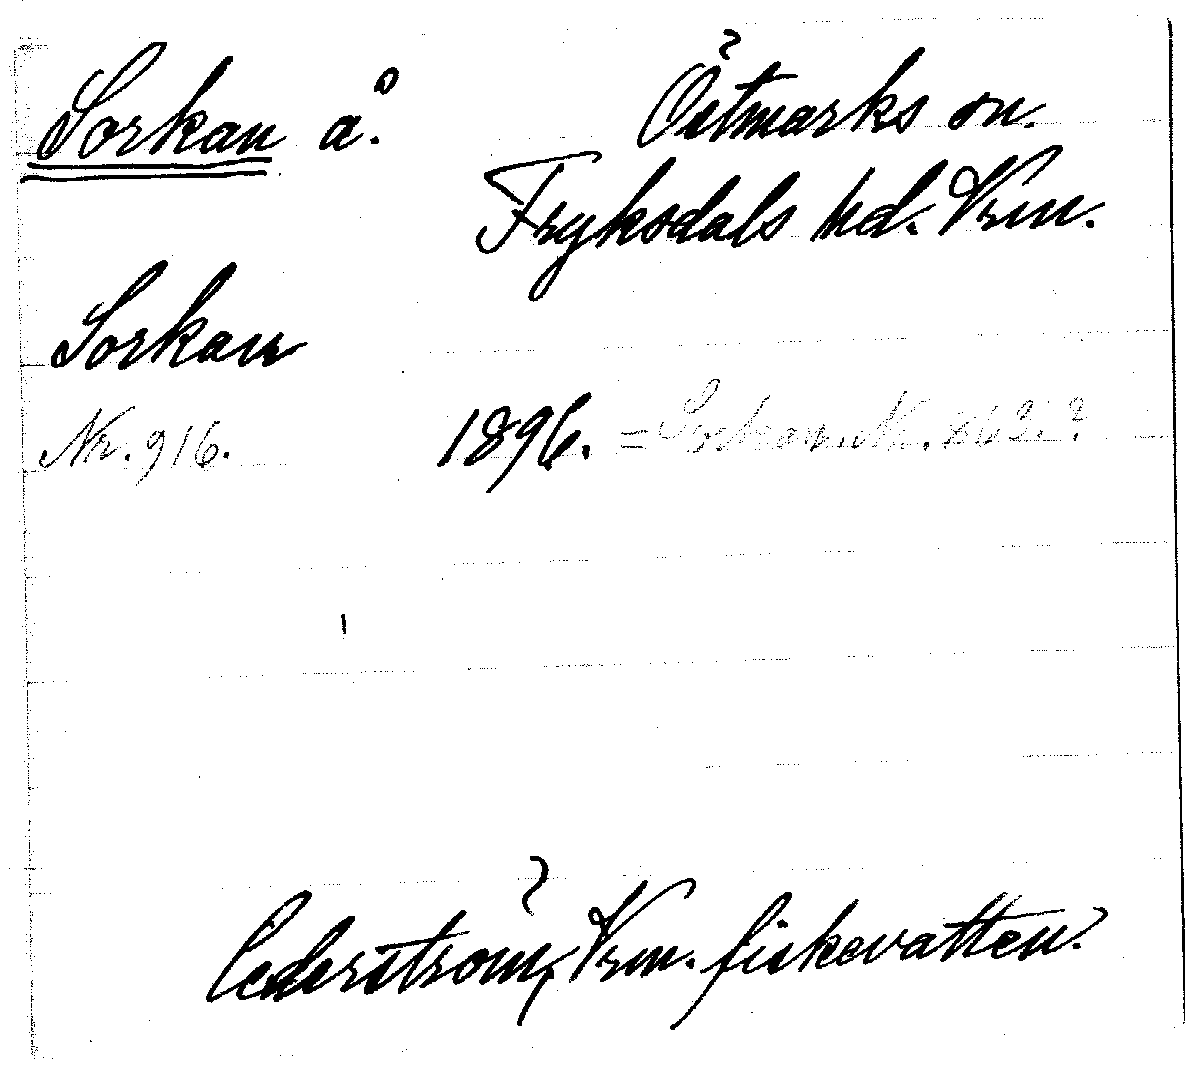 Sorkan å. Östmarks sn.
Fryksdals hd. Vrm.
Sorkan
Nr. 916. 1896. = Sorkan. Nr. 862. ?
Cederström, Vrm. fiskevatten.